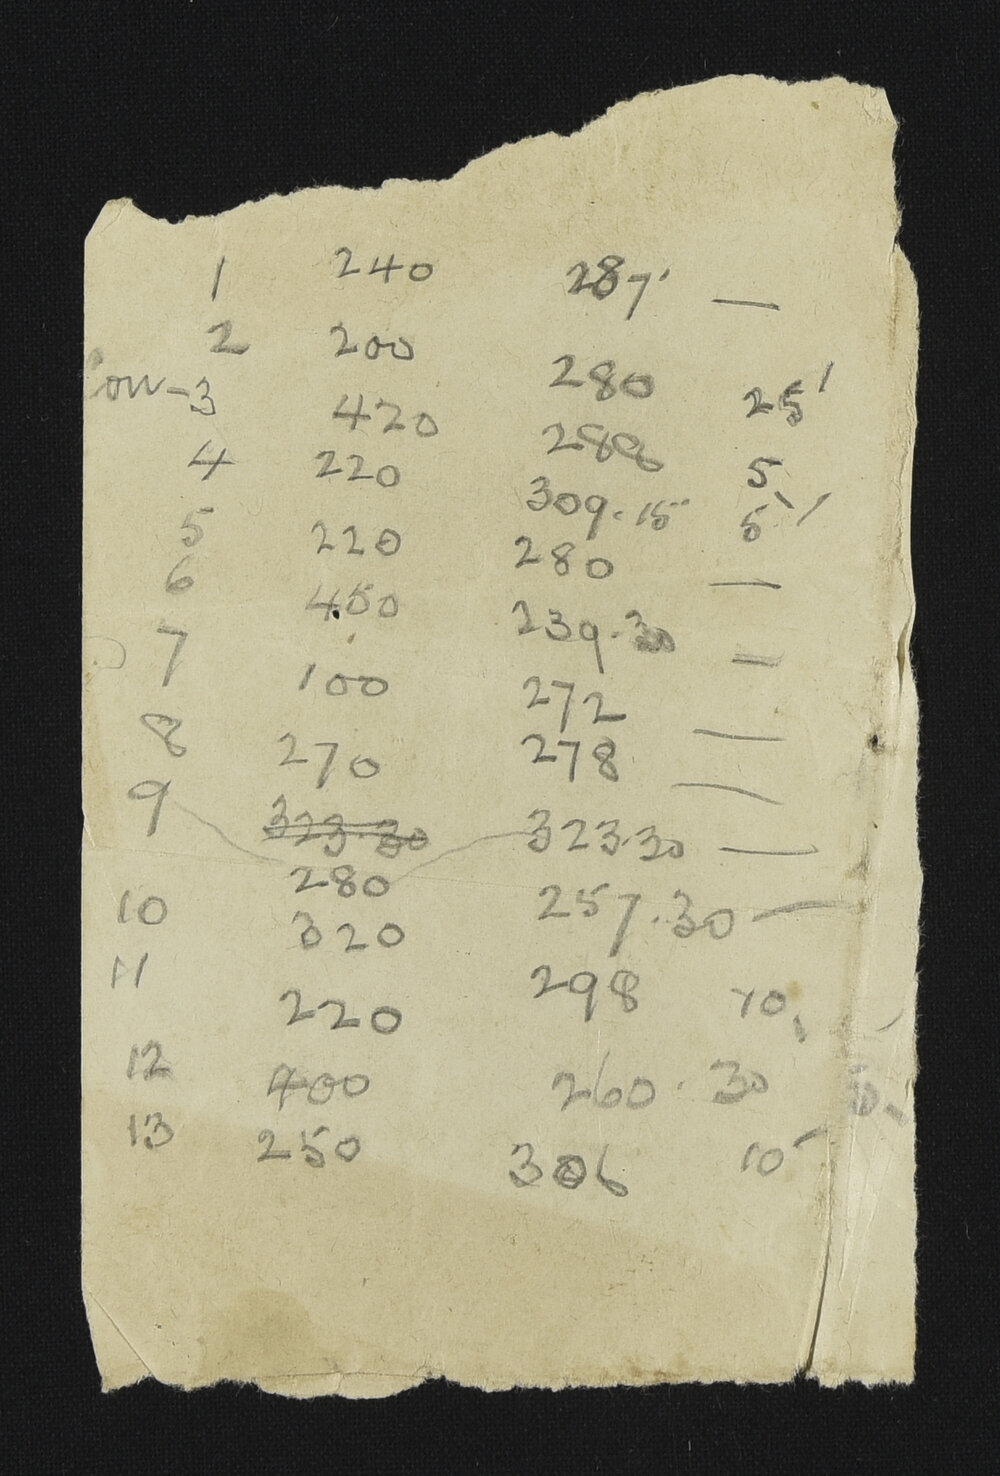 1 240 287' —
2 200 280 25'
ow-3 420 288 5
4 220 309.15 5'
5 220 280 —
6 450 239.30 —
7 100 272 —
8 270 278 —
9 323.30 323.30 —
280
10 320 257.30 —
11 220 298 10
12 400 260.30
13 250 306 10